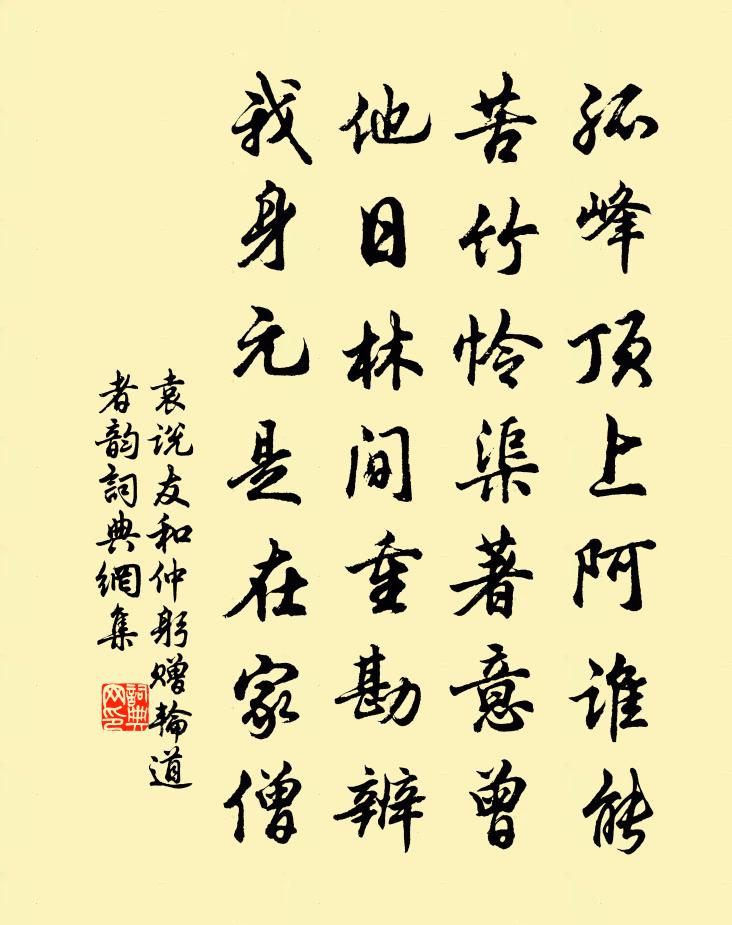 孤峰顶上阿谁能
苦竹怜渠著意曾
他日林间重勘辨
我身元是在家僧
袁说友和仲躬赠轮道
者韵詞典網集
詞典网印